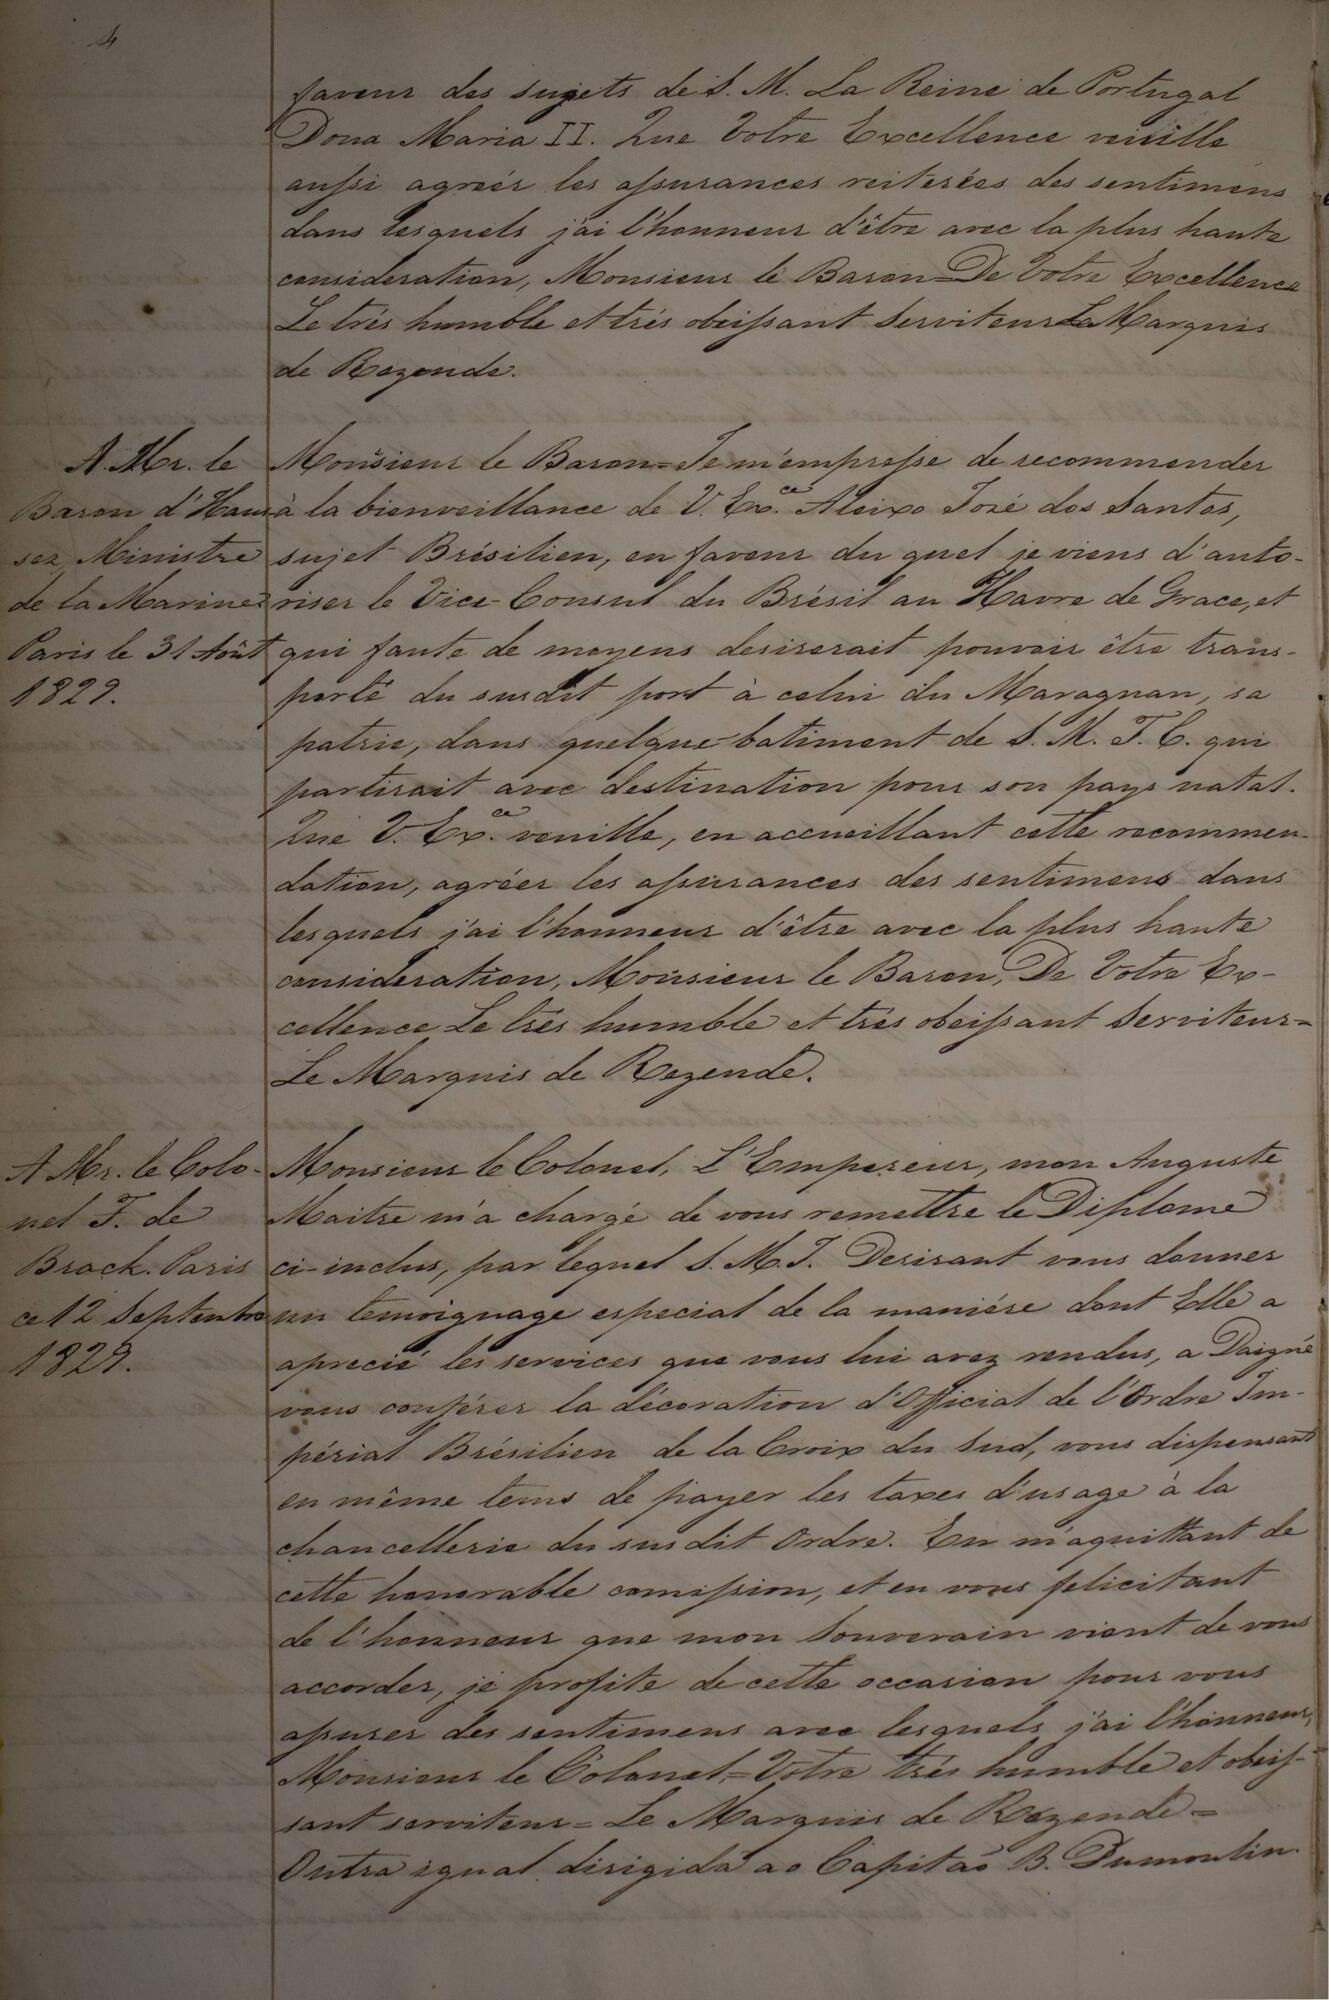 4
faveur des sujets de S. M. La Reine de Portugal
Dona Maria II. Que Votre Excellence veuille
aussi agreér les assurances reiterées des sentimens
dans lesquels j'ai l'honneur d'être avec la plus haute
consideration, Monsieur le Baron = De Votre Excellence
Le trés humble et trés obeissant Serviteur Le Marquis
de Rezende.
A Mr. le
Baron d'Haus
sez, Ministre
de la Marine
Paris le 31 Août
1829.
Monsieur le Baron = Je m'empresse de recommender
à la bienveillance de V. Ex.ce Aleixo José dos Santos,
sujet Brésilien, en faveur du quel je viens d'auto-
riser le Vice-Consul du Brésil au Havre de Grace, et
qui faute de moyens desirerait pouvoir être trans-
porté du susdit port à celui du Maragnan, sa
patrie, dans quelque batiment de S. M. T. C. qui
partirait avec destination pour son pays natal.
Que V. Ex.ce veuille, en accueillant cette recommen-
dation, agréer les assurances des sentimens dans
lesquels j'ai l'honneur d'être avec la plus haute
consideration, Monsieur le Baron, De Votre Ex-
cellence Le trés humble et trés obeissant Serviteur =
Le Marquis de Rezende.
A Mr. le Colo-
nel F. de
Brack. Paris
ce 12 Septembre
1829.
Monsieur le Colonel, L'Empereur, mon Auguste
Maitre m'a chargé de vous remettre le Diplome
ci-inclus, par lequel S. M. I. Desirant vous donner
un temoignage especial de la maniére dont Elle a
aprecié les services que vous lui avez rendus, a Daigné
vous conférer la décoration d'Official de l'Ordre Im-
périal Brésilien de la Croix du Sud, vous dispensant
en même tems de payer les taxes d'usage à la
chancellerie du susdit Ordre. En m'aquittant de
cette honorable comission, et en vous felicitant
de l'honneur que mon Souverain vient de vous
accorder, je profite de cette occasion pour vous
assurer des sentimens avec lesquels j'ai l'honneur,
Monsieur le Colonel, = Votre trés humble et obeis-
sant serviteur = Le Marquis de Rezende =
Outra igual dirigida ao Capitão B. Dumoulin.